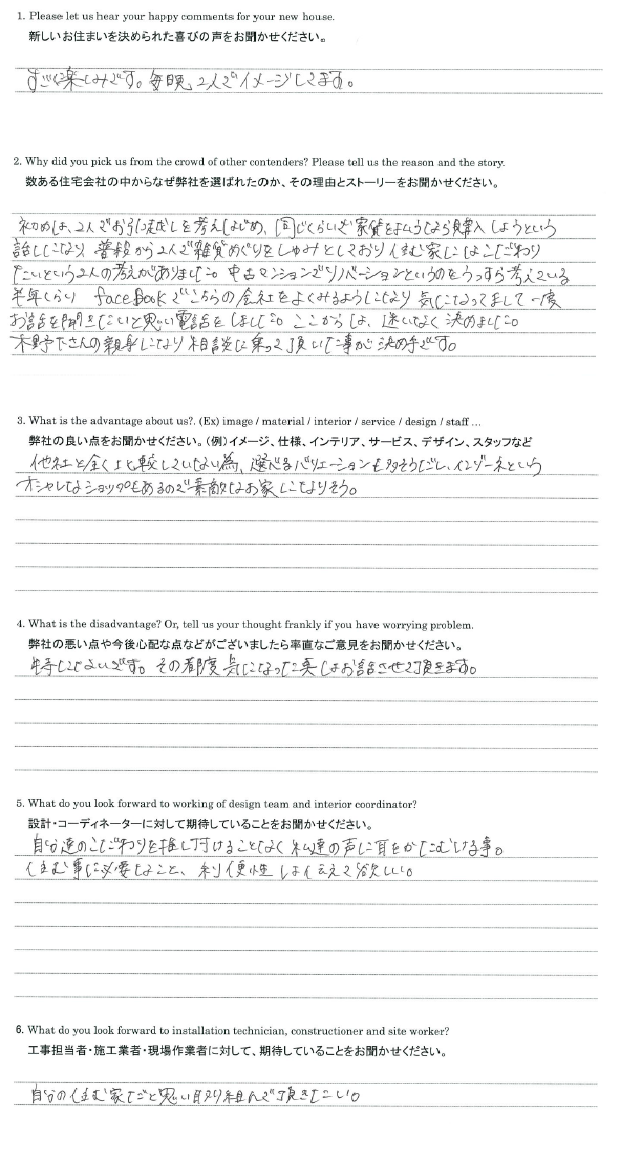 1. Please let us hear your happy comments for your new house.
新しいお住まいを決められた喜びの声をお聞かせください。
すごく楽しみです。毎晩、2人でイメージしてます。
2. Why did you pick us from the crowd of other contenders? Please tell us the reason and the story.
数ある住宅会社の中からなぜ弊社を選ばれたのか、その理由とストーリーをお聞かせください。
初めは、2人でお引越しを考えはじめ、同じくらいで家賃をはらうなら購入しようという
話しになり 普段から2人で雑貨めぐりをしゅみとしており住む家にはこだわり
たいという2人の考えがありました。中古マンションでリノベーションというのをうっすら考えている
半年くらい faceBookでこちらの会社をよくみるようになり 気になってまして一度
お話を聞きたいと思い電話をしました。ここからは、迷いなく決めました。
木野下さんの親身になり相談に乗って頂いた事が決め手です。
3. What is the advantage about us?. (Ex) image / material / interior / service / design / staff ...
弊社の良い点をお聞かせください。（例）イメージ、仕様、インテリア、サービス、デザイン、スタッフなど
他社と全く比較していない為、選べるバリエーションも多そうだし、インゾーネという
オシャレなショップもあるので素敵なお家になりそう。
4. What is the disadvantage? Or, tell us your thought frankly if you have worrying problem.
弊社の悪い点や今後心配な点などがございましたら率直なご意見をお聞かせください。
特にないです。その都度気になった点はお話させて頂きます。
5. What do you look forward to working of design team and interior coordinator?
設計・コーディネーターに対して期待していることをお聞かせください。
自分達のこだわりを推し付けることなく私達の声に耳をかたむける事。
住む事に必要なこと、利便性は伝えて欲しい。
6. What do you look forward to installation technician, constructioner and site worker?
工事担当者・施工業者・現場作業者に対して、期待していることをお聞かせください。
自分の住む家だと思い取り組んで頂きたい。